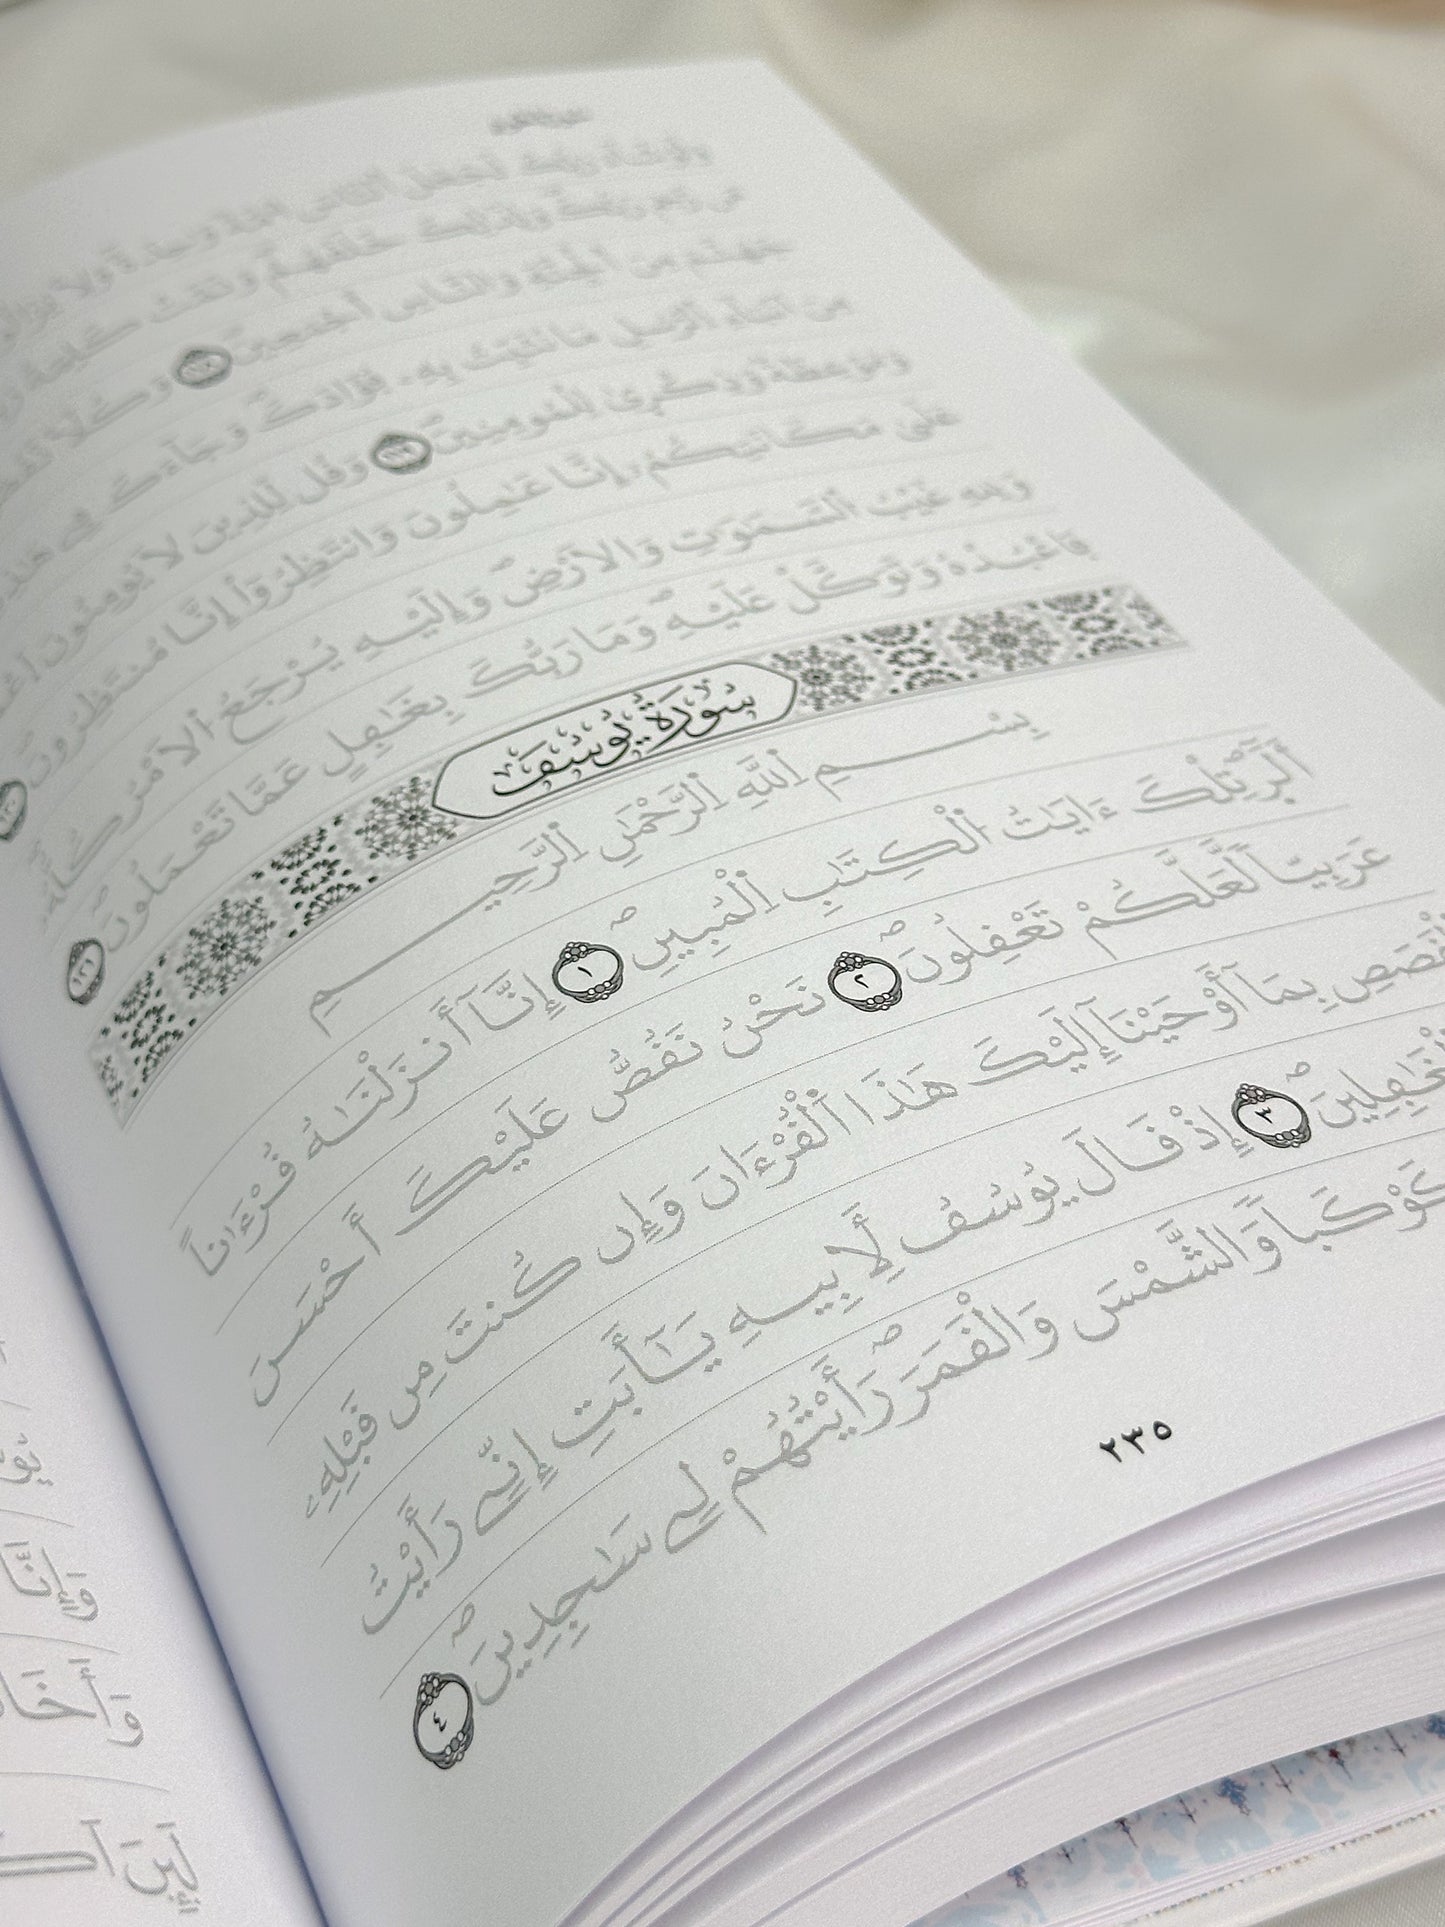 وَلَوْ شَآءَ رَبُّكَ لَجَعَلَ اَلنَّاسَ أُمَّةً وَٰحِدَةً وَلَا
مَن رَّحِمَ رَبُّكَ وَلِذَٰلِكَ خَلَقَهُمْ وَتَمَّتْ كَلِمَةُ
جَهَنَّمَ مِنَ اَلْجِنَّةِ وَالنَّاسِ أَجْمَعِينَ ١١٨ وَكُلًّا
مِنَ اَنۢبَآءِ اِلرُّسُلِ مَا نُثَبِّتُ بِهِۦ فُؤَادَكَ وَجَآءَكَ فِے
وَمَوْعِظَةٌ وَذِكْرَىٰ لِلْمُومِنِينَ ١١٩ وَقُل لِّلذِينَ لَا يُومِنُونَ
عَلَىٰ مَكَانَتِكُمُۥ إِنَّا عَٰمِلُونَ وَانتَظِرُوٓاْ إِنَّا مُنتَظِرُونَ ١٢٠
وَلِلهِ غَيْبُ اُلسَّمَٰوَٰتِ وَالَارْضِ وَإِلَيْهِ يُرْجَعُ اُلَامْرُ كُلُّهُۥ
فَاعْبُدْهُ وَتَوَكَّلْ عَلَيْهِ وَمَا رَبُّكَ بِغَٰفِلٍ عَمَّا تَعْمَلُونَ ١٢١
سُورَةُ يُوسُفَ
بِسْمِ اِللَّهِ اِلرَّحْمَٰنِ اِلرَّحِيمِ
أَلَٓر تِلْكَ ءَايَٰتُ اُلْكِتَٰبِ اِلْمُبِينِ ١ إِنَّآ أَنزَلْنَٰهُ قُرْءَٰناً
عَرَبِيّاً لَّعَلَّكُمْ تَعْقِلُونَ ٢ نَحْنُ نَقُصُّ عَلَيْكَ أَحْسَنَ
اَلْقَصَصِ بِمَآ أَوْحَيْنَآ إِلَيْكَ هَٰذَا اَلْقُرْءَانَ وَإِن كُنتَ مِن قَبْلِهِۦ
اَلْغَٰفِلِينَ ٣ إِذْ قَالَ يُوسُفُ لِأَبِيهِ يَٰٓأَبَتِ إِنِّے رَأَيْتُ
كَوْكَباً وَالشَّمْسَ وَالْقَمَرَ رَأَيْتُهُمْ لِے سَٰجِدِينَ ٤
٢٣٥
وَإِنَّا